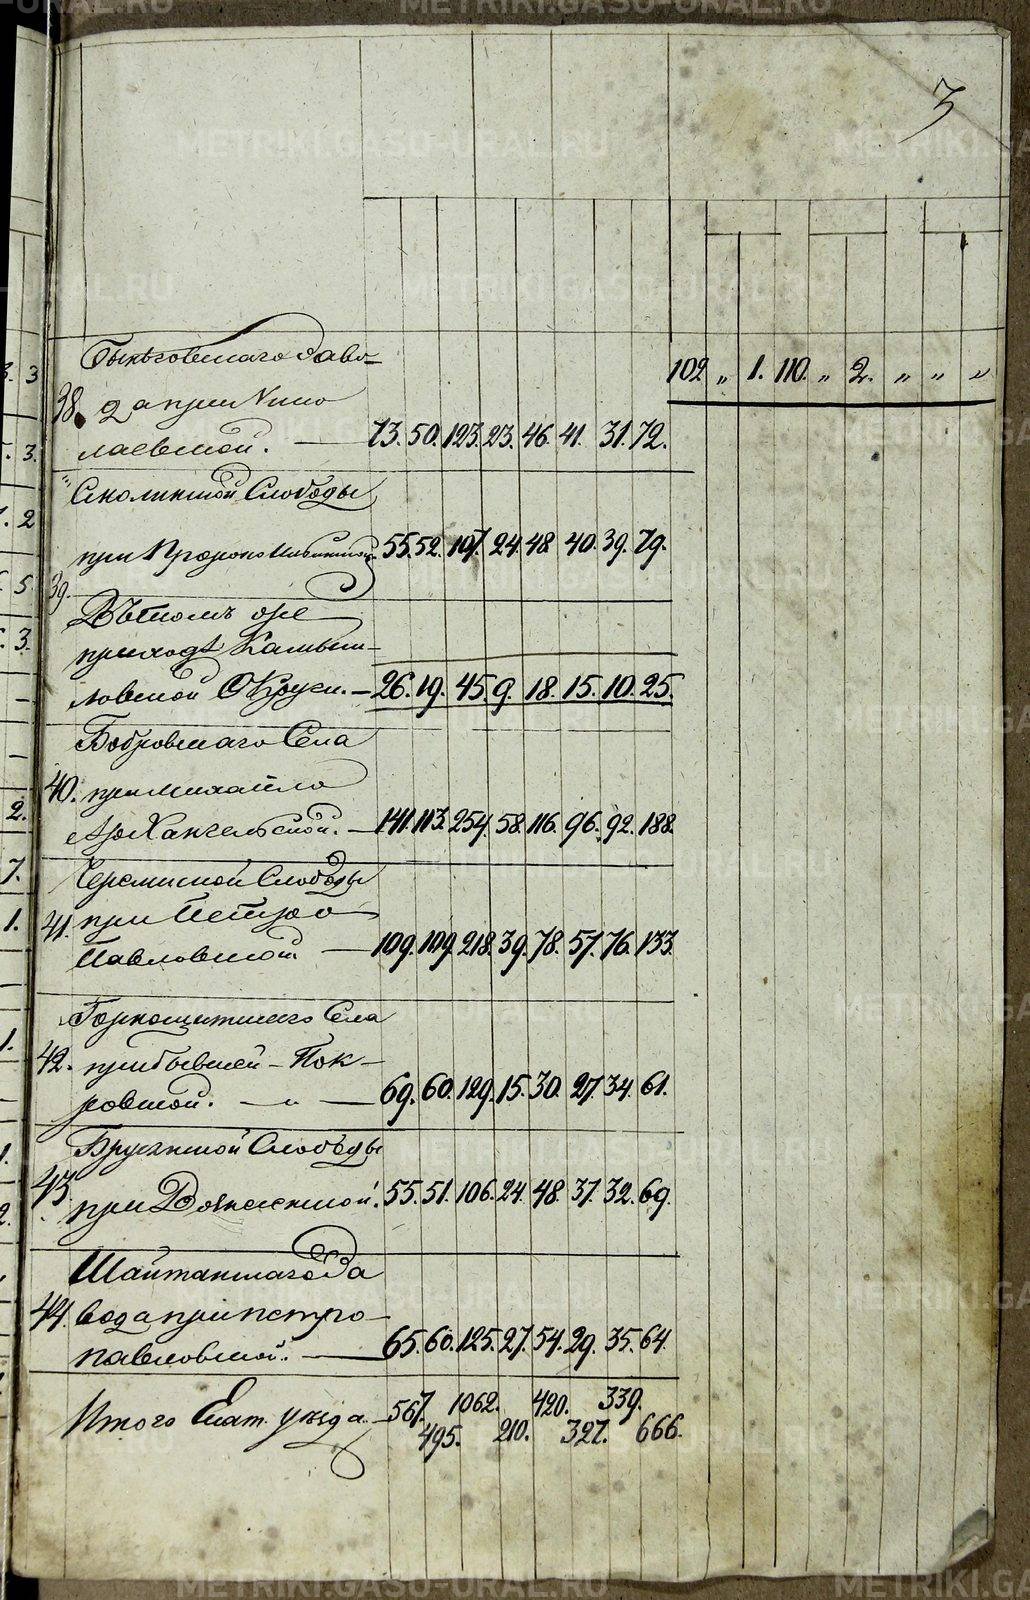 METRIKI.GASU-URAL.RU
3
Быньговскаго Заво-
38. да при Нико
лаевской. — 73. 50. 123. 23. 46. 41. 31. 72.
102 „ 1. 110. „ 2. „ „ „
Сколинской Слободы
при Пророко Ильинской 55. 52. 107. 24. 48. 40. 39. 79.
39.
Въ томъ же
приходѣ Камыш-
ловской Округи. — 26. 19. 45. 9. 18. 15. 10. 25.
Бобровскаго Села
40. при Михайло
Архангельской. — 141. 113. 254. 58. 116. 96. 92. 188.
Черемиской Слободы
41. при Петро
Павловской — 109. 109. 218. 39. 78. 57. 76. 133.
Горнощитскаго Села
42. при бывшей – Пок-
ровской. — „ — 69. 60. 129. 15. 30. 27. 34. 61.
Брусянской Слободы
43. при Вознесенской. 55. 51. 106. 24. 48. 37. 32. 69.
Шайтанскаго За
44. вода при петро-
павловской. — 65. 60. 125. 27. 54. 29. 35. 64.
Итого Екат. уѣзда. – 567. 1062. 420. 339.
495. 210. 327. 666.